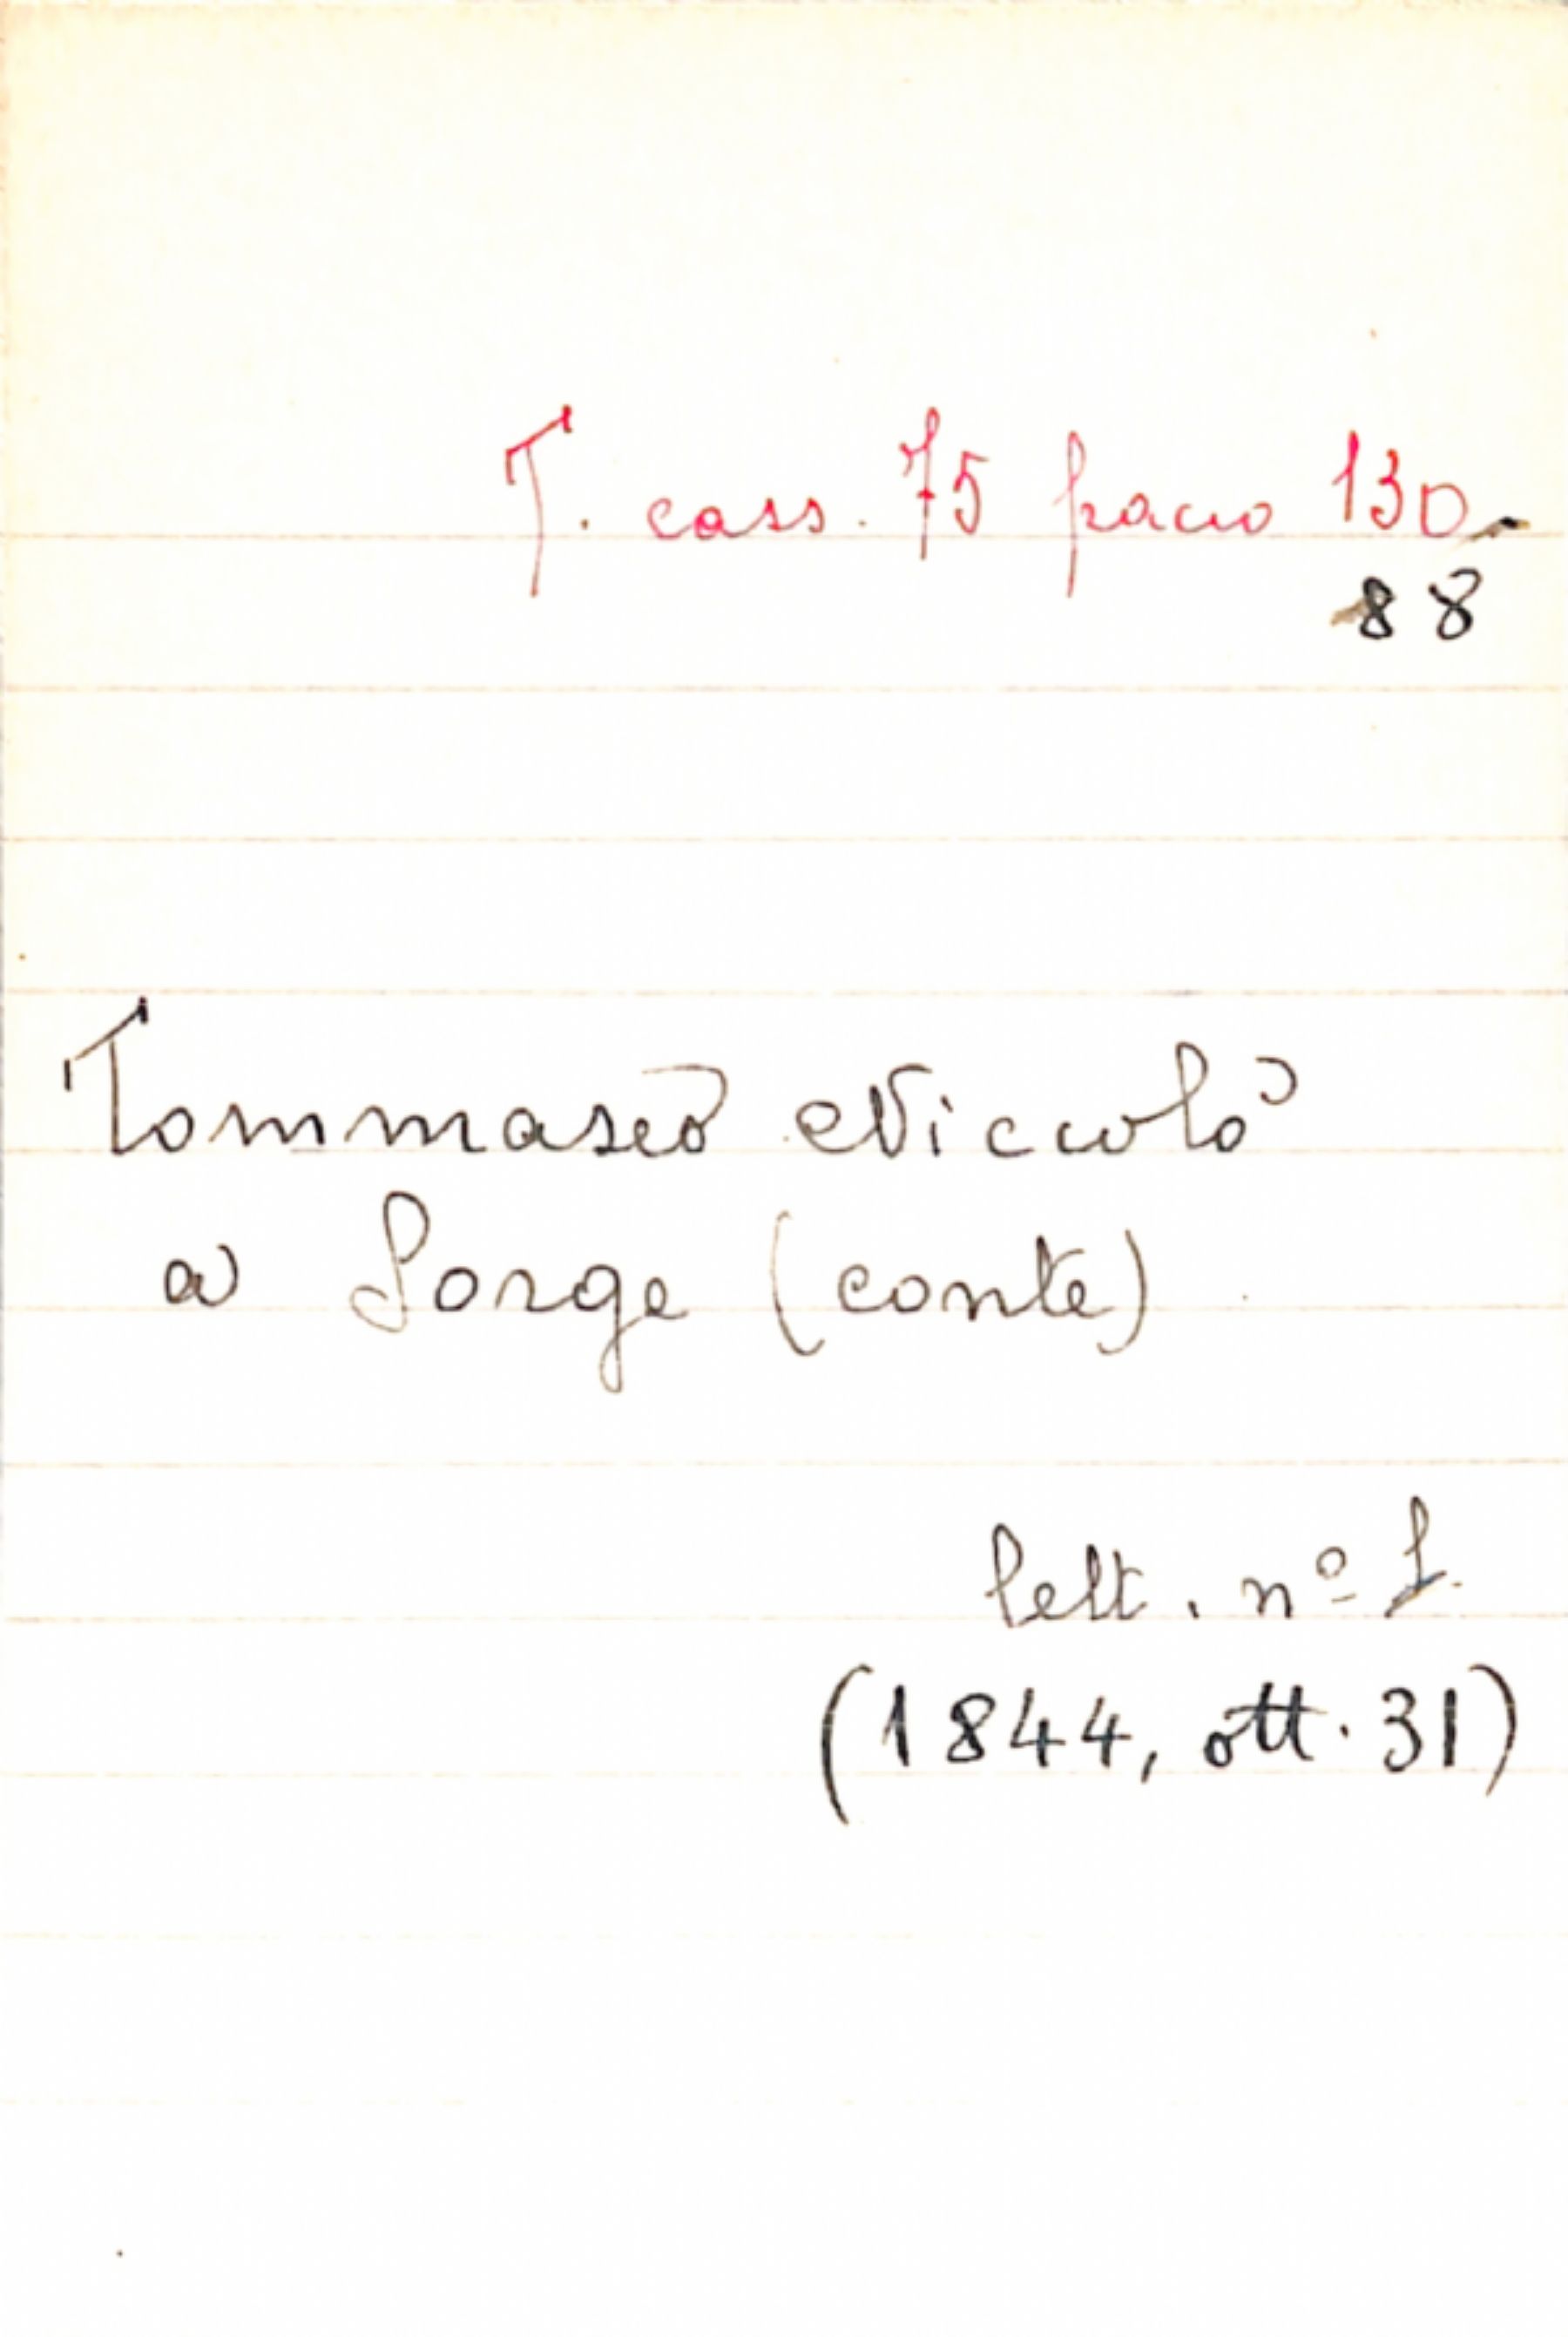 T. cass. 75 pacco 130
88
Tommaseo Niccolò
a Sorge (conte)
lett. nº 1.
(1844, ott. 31)